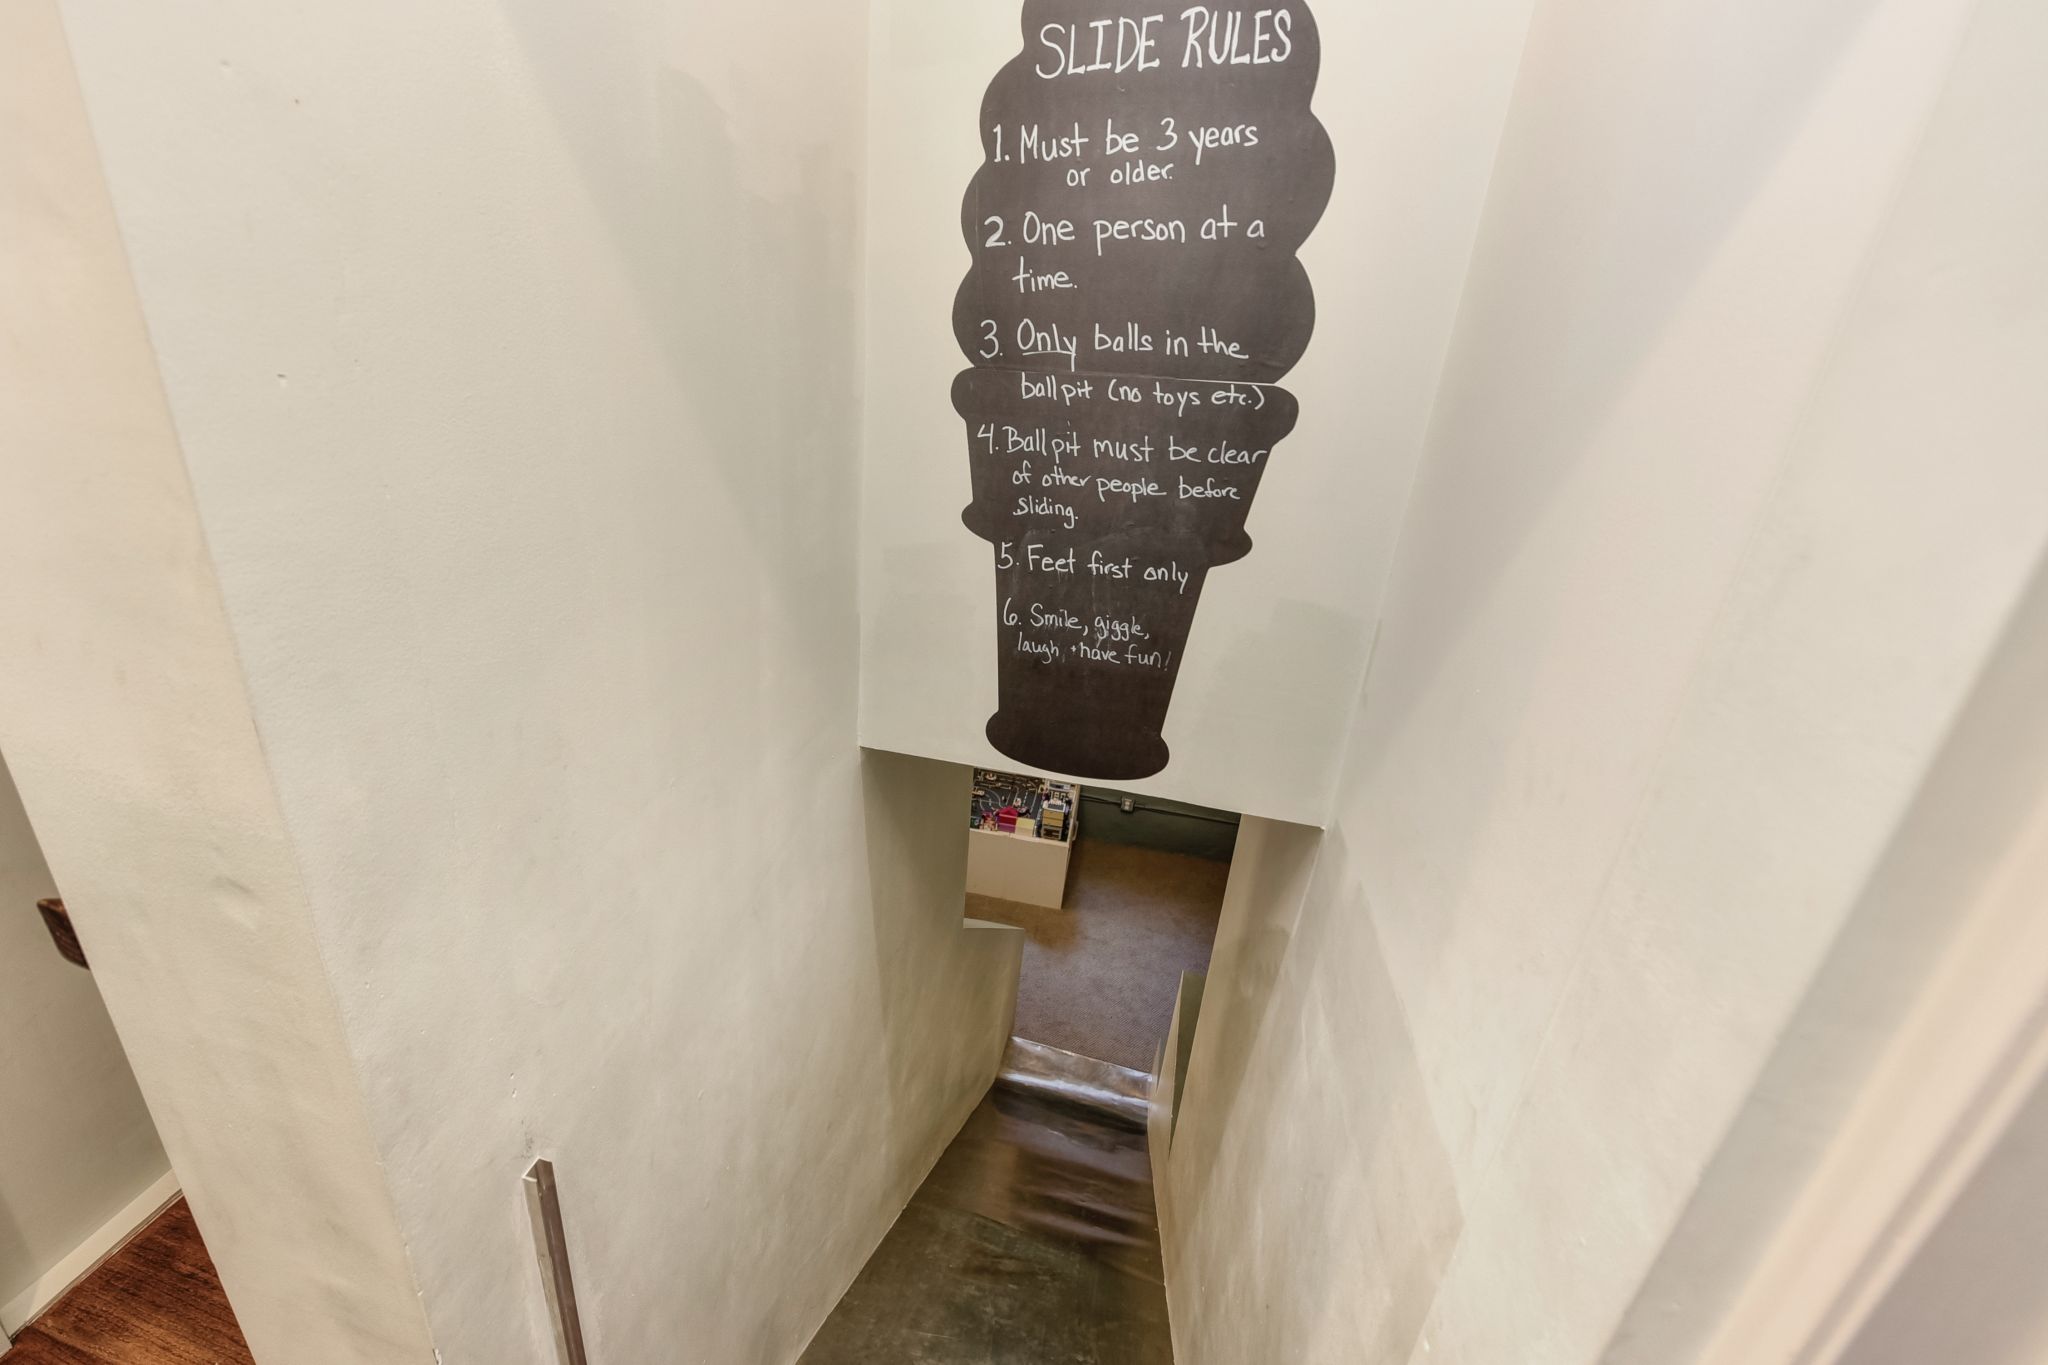 SLIDE RULES
1. Must be 3 years
or older.
2. One person at a
time.
3. Only balls in the
ball pit (no toys etc.)
4. Ball pit must be clear
of other people before
sliding.
5. Feet first only
6. Smile, giggle,
laugh, + have fun!